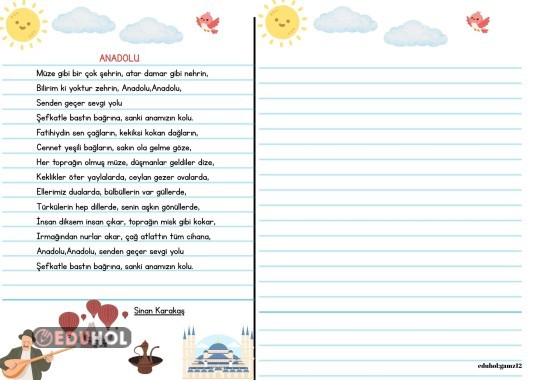 ANADOLU
Müze gibi bir çok şehrin, atar damar gibi nehrin,
Bilirim ki yoktur zehrin, Anadolu,Anadolu,
Senden geçer sevgi yolu
Şefkatle bastın bağrına, sanki anamızın kolu.
Fatihiydin sen çağların, kekiksi kokan dağların,
Cennet yeşili bağların, sakın ola gelme göze,
Her toprağın olmuş müze, düşmanlar geldiler dize,
Keklikler öter yaylalarda, ceylan gezer ovalarda,
Ellerimiz dualarda, bülbüllerin var güllerde,
Türkülerin hep dillerde, senin aşkın gönüllerde,
İnsan diksem insan çıkar, toprağın misk gibi kokar,
Irmağından nurlar akar, çağ atlattın tüm cihana,
Anadolu,Anadolu, senden geçer sevgi yolu
Şefkatle bastın bağrına, sanki anamızın kolu.
Sinan Karakaş
EDUHOL
eduhol:gamz12